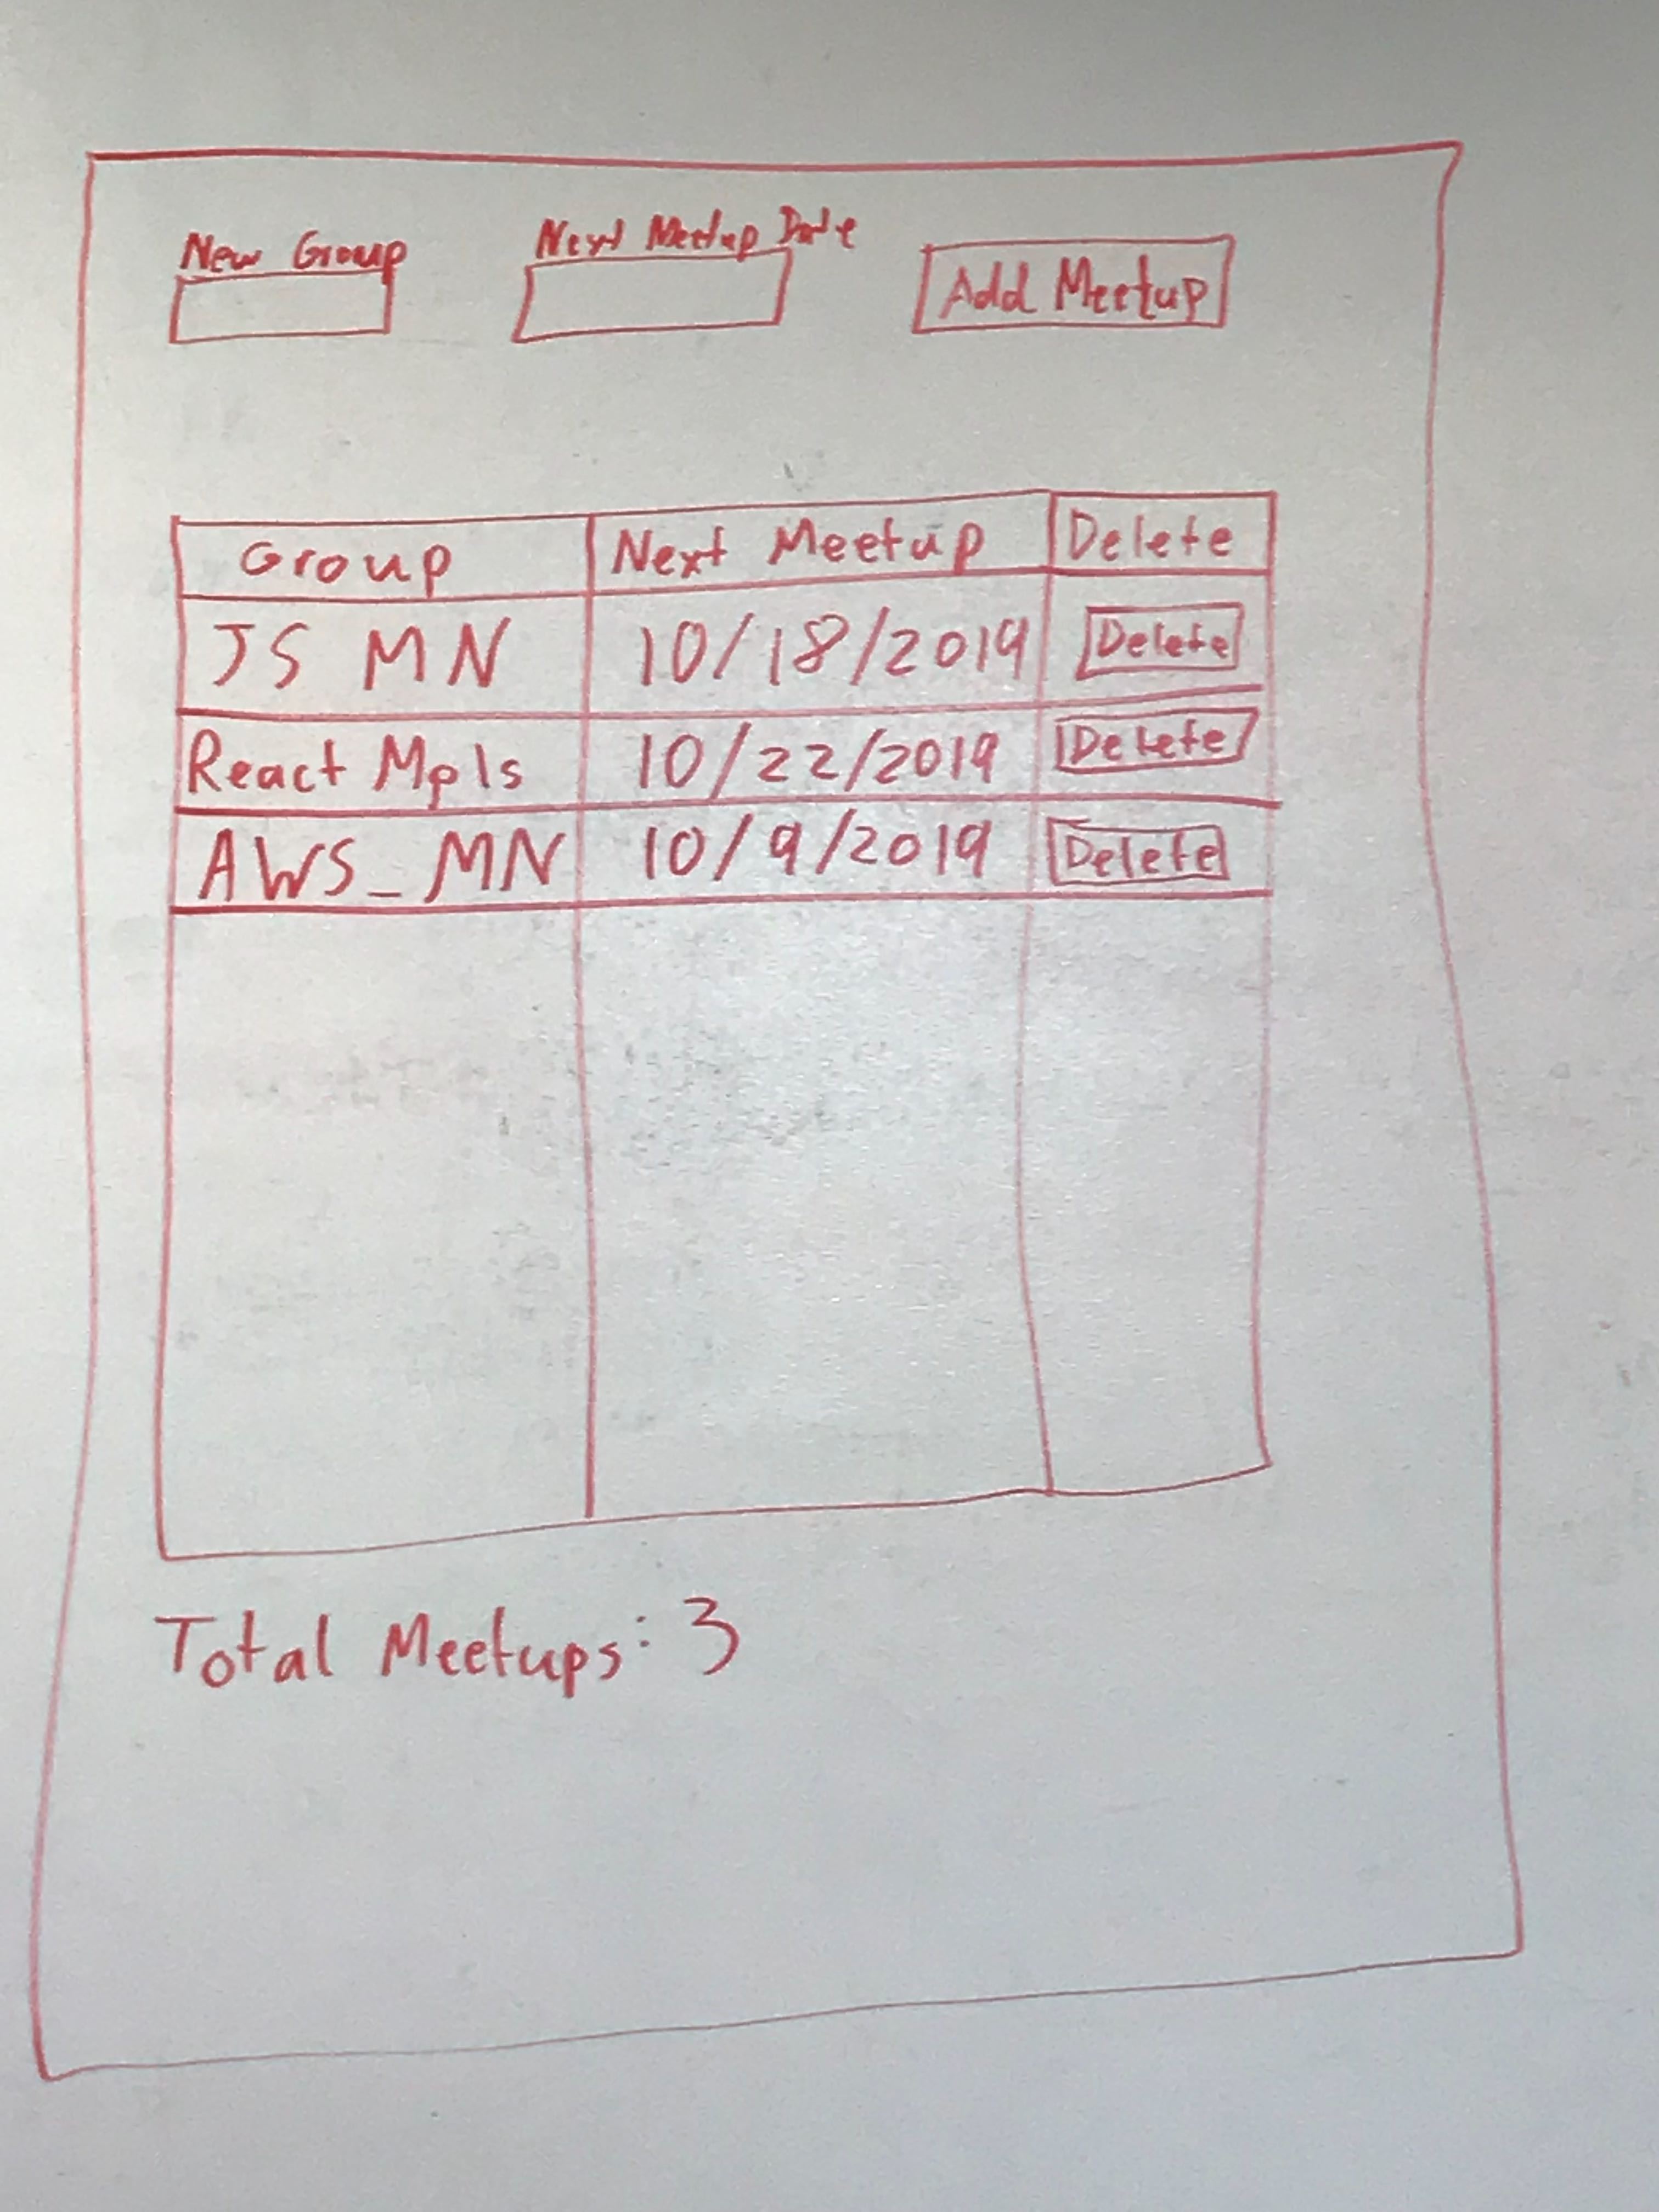 New Group Next Meetup Date Add Meetup
Group Next Meetup Delete
JS MN 10/18/2019 Delete
React Mpls 10/22/2019 Delete
AWS_MN 10/9/2019 Delete
Total Meetups: 3